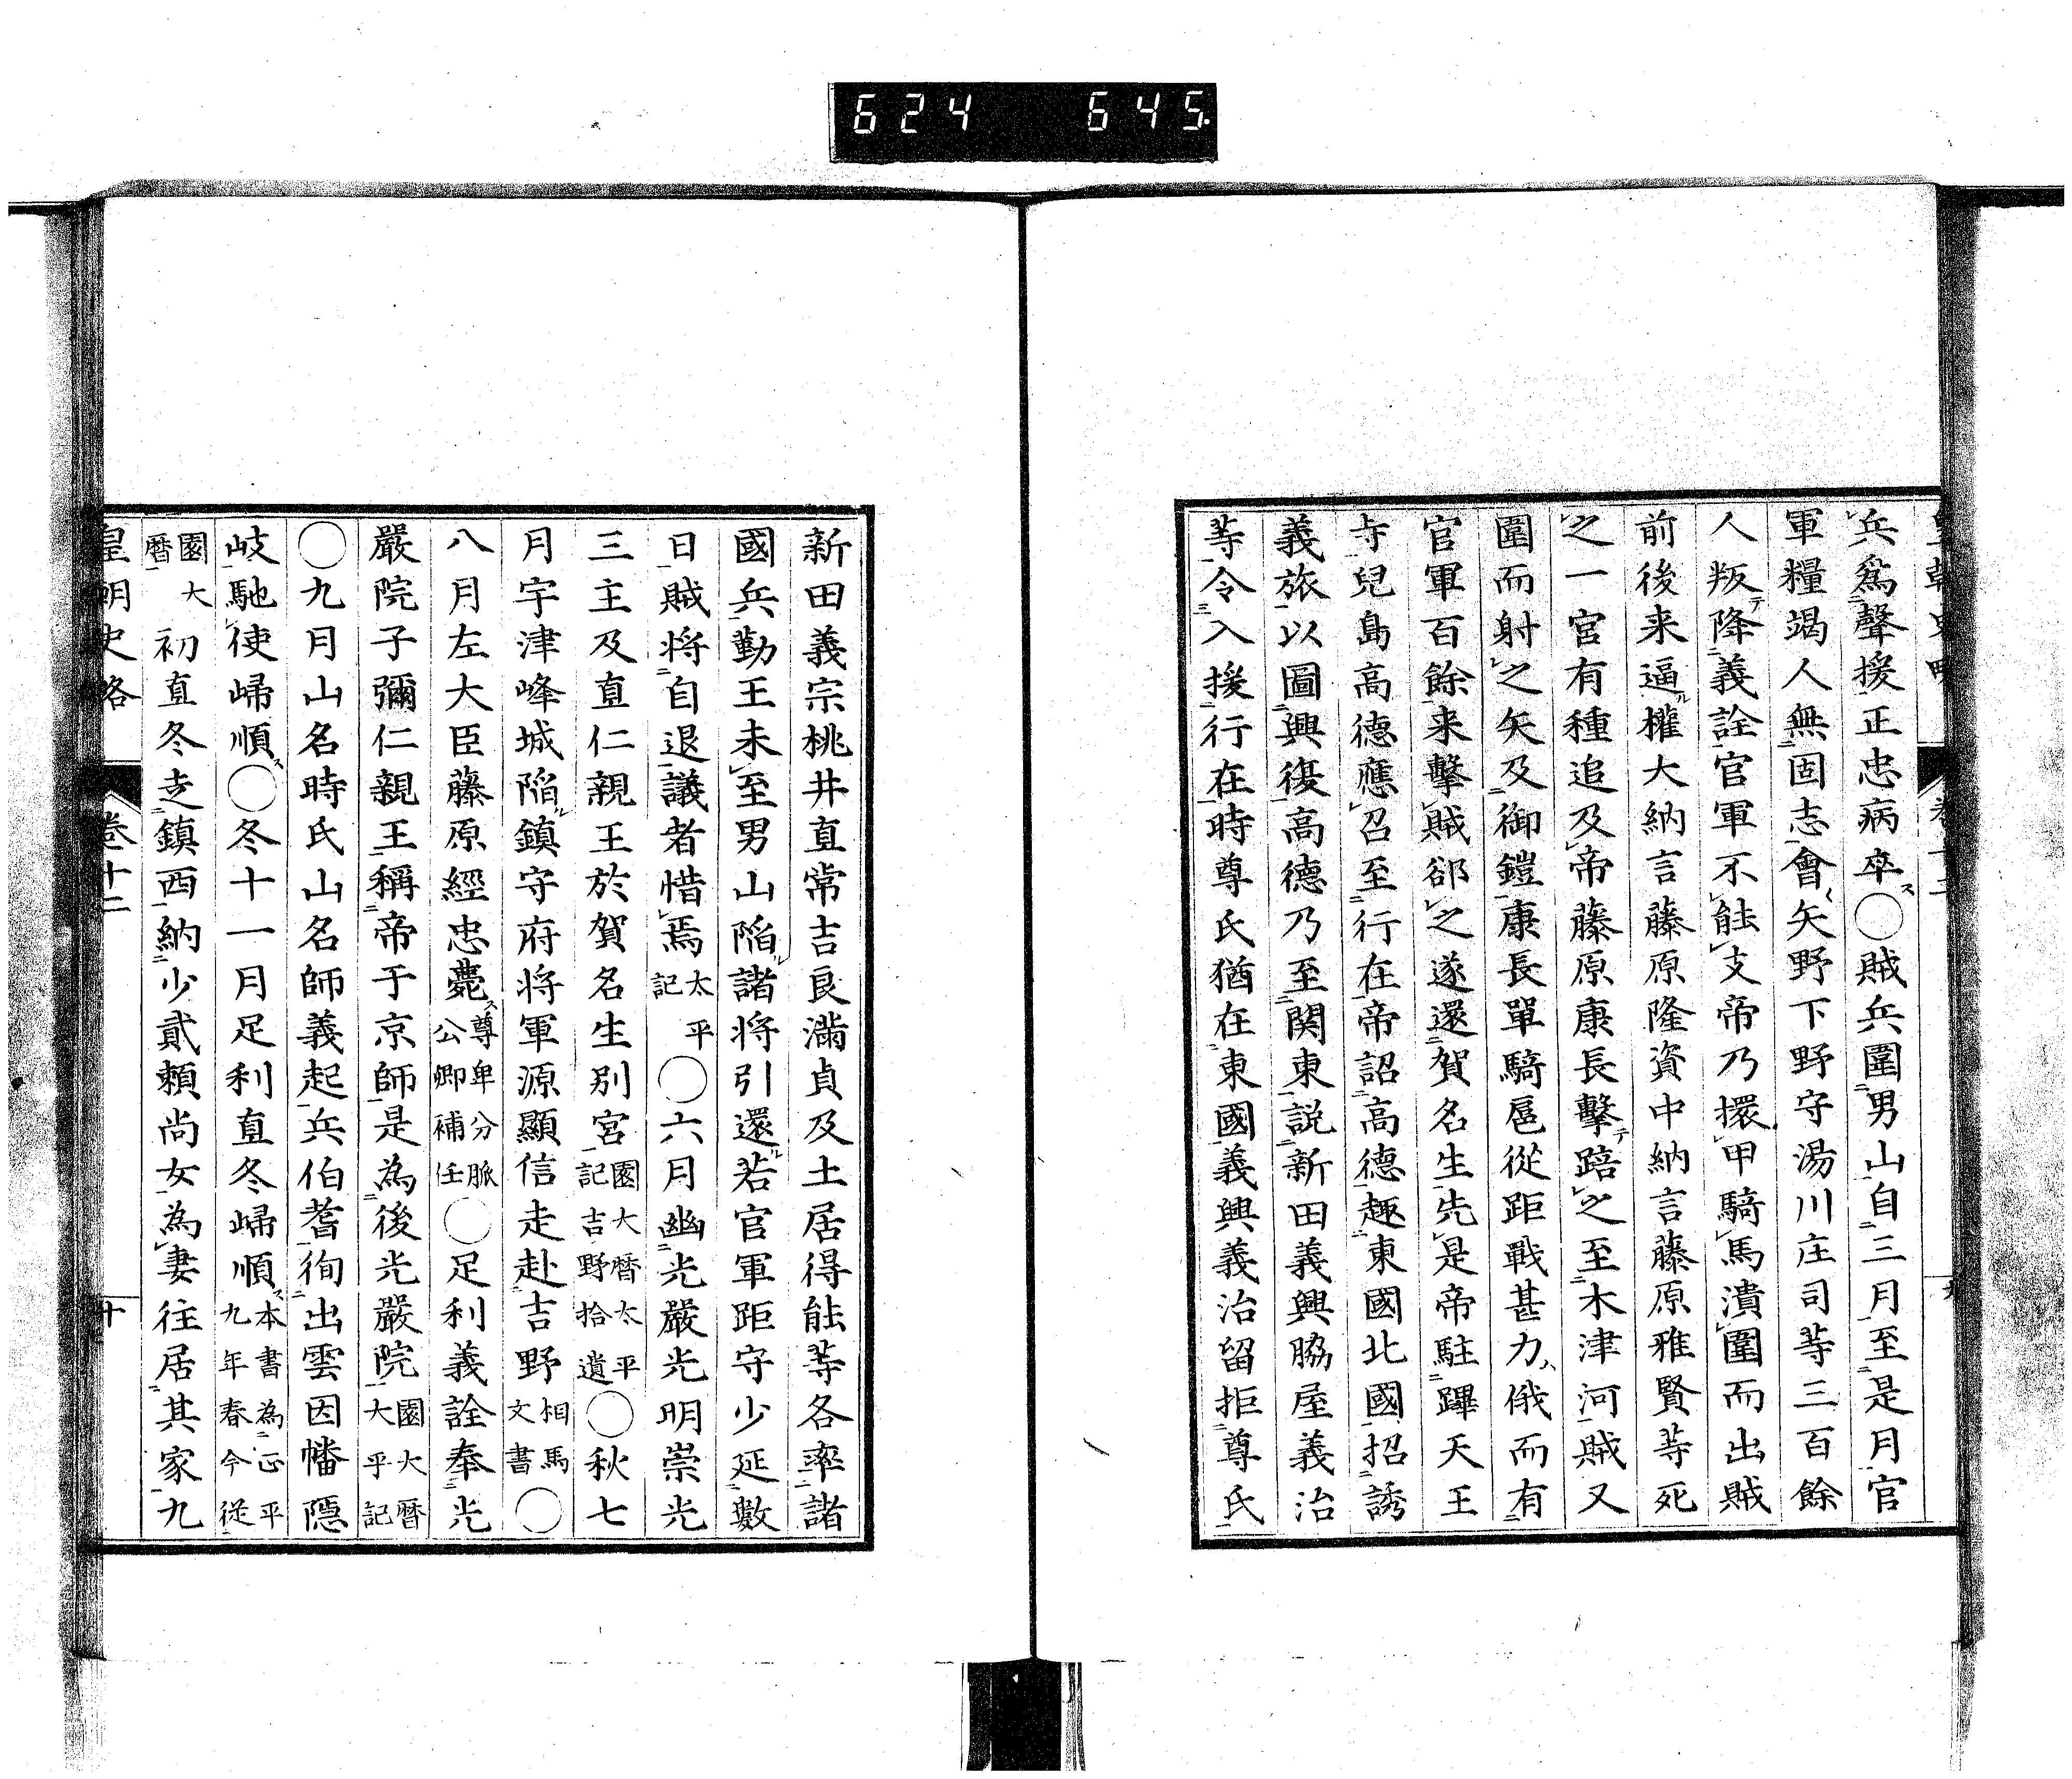 624 645
兵爲聲援正忠病卒〇賊兵圍男山自三月至是月官
軍糧竭人無固志會矢野下野守湯川庄司等三百餘
人叛降義詮官軍不能支帝乃擐甲騎馬潰圍而出賊
前後来逼權大納言藤原隆資中納言藤原雅賢等死
之一宮有種追及帝藤原康長擊踣之至木津河賊又
圍而射之矢及御鎧康長單騎扈從距戰甚力俄而有
官軍百餘来擊賊郤之遂還賀名生先是帝駐蹕天王
寺兒島高德應召至行在帝詔高德趣東國北國招誘
義旅以圖興復高德乃至関東説新田義興脇屋義治
等令入援行在時尊氏猶在東國義興義治留拒尊氏
新田義宗桃井直常吉良滿貞及土居得能等各率諸
國兵勤王未至男山陷諸将引還若官軍距守少延數
日賊将自退議者惜焉太平記〇六月幽光嚴光明崇光
三主及直仁親王於賀名生別宮園大暦太平記吉野拾遺〇秋七
月宇津峰城陷鎮守府将軍源顯信走赴吉野相馬文書〇
八月左大臣藤原經忠薨尊卑分脈公卿補任〇足利義詮奉光
嚴院子彌仁親王稱帝于京師是為後光嚴院園大暦大平記
〇九月山名時氏山名師義起兵伯耆徇出雲因幡隠
岐馳使歸順〇冬十一月足利直冬歸順本書為正平九年春今従
園大暦初直冬走鎮西納少貳頼尚女為妻往居其家九
皇朝史略 卷十二 十